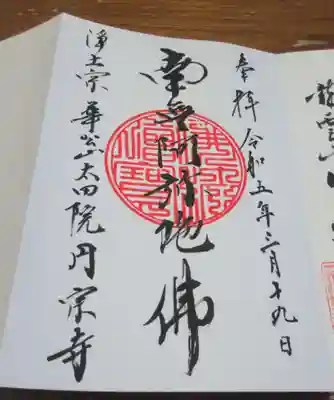 奉拝 令和五年三月十九日
南無阿弥陀佛
浄土宗 華公山太田院円宗寺